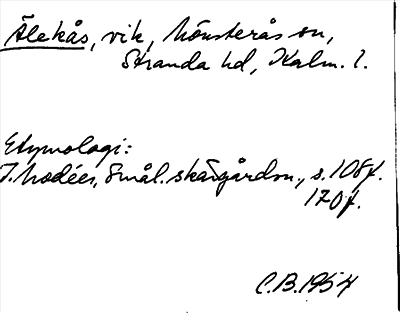 Älekås, vik, Mönsterås sn,
Stranda hd, Kalm. l.
Etymologi:
J. Modéer, Smål. skärgårdsn., s. 108f.
170f.
C.B. 1954